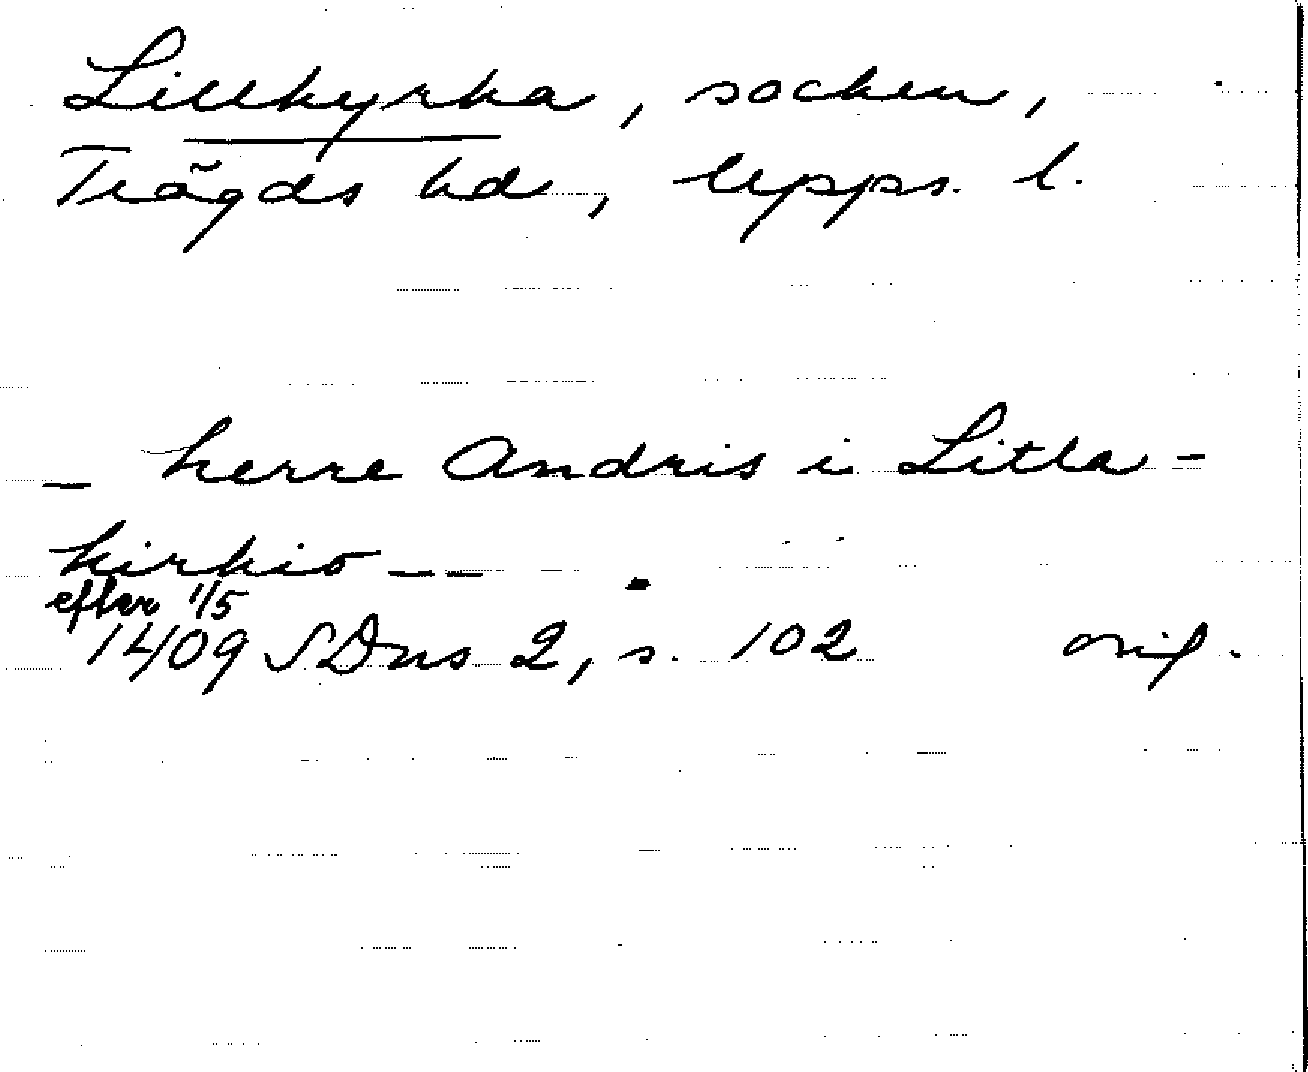 Lillkyrka, socken,
Trögds hd, Upps. l.
_ herre Andris i Litla-
kirkio _ _
efter 1/5
1409 SDns 2, s. 102 orig.